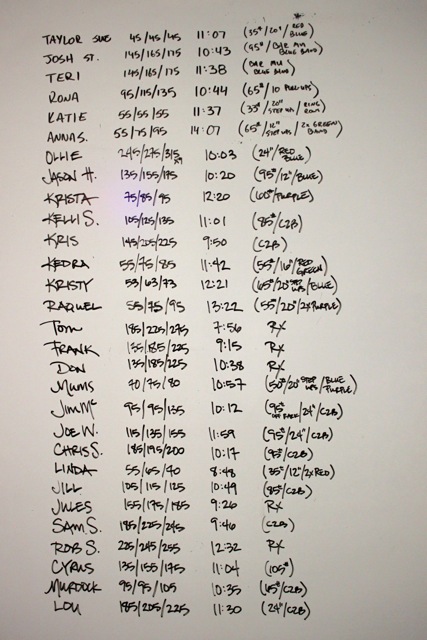 TAYLOR SUE 45/45/45 11:07 (35#/20"/RED BLUE)
JOSH ST. 145/165/175 10:43 (95#/BAR MU BLUE BAND)
TERI 145/165/175 11:38 (BAR MU BLUE BAND)
RONA 95/115/135 10:44 (65#/10 PULL-UPS)
KATIE 55/55/55 11:37 (33#/20" STEP UPS/RING ROW)
ANNA S. 55/75/95 14:07 (65#/12" STEP UPS/2X GREEN BAND)
OLLIE 245/275/315 10:03 (24"/RED BLUE)
JASON H. 135/155/175 10:20 (95#/12"/BLUE)
KRISTA 75/85/95 12:20 (/PURPLE)
KELLI S. 105/125/135 11:01 (85#/C2B)
KRIS 145/205/225 9:50 (C2B)
KEDRA 55/75/85 11:42 (55#/16"/RED GREEN)
KRISTY 53/63/73 12:21 (65#/20" STEP UPS/BLUE)
RAQUEL 55/75/95 13:22 (55#/20"/2XPURPLE)
TOM 185/225/275 7:56 RX
FRANK 135/185/225 9:15 RX
DON 135/185/225 10:38 RX
MUMS 70/75/80 10:57 (50#/20" STEP UPS/BLUE PURPLE)
JIM MC 95/95/135 10:12 (95# OFF RACK/24"/C2B)
JOE W. 115/135/155 11:59 (95#/24"/C2B)
CHRIS S. 185/195/200 10:17 (95#/C2B)
LINDA 55/65/70 8:48 (35#/12"/2XRED)
JILL 105/115/125 10:49 (85#/C2B)
JULES 155/175/185 9:26 RX
SAM S. 185/225/245 9:46 (C2B)
ROB S. 225/245/255 12:32 RX
CYRUS 135/155/175 11:04 (105#)
MURDOCK 95/95/105 10:35 (65#/C2B)
LOU 185/205/225 11:30 (24"/C2B)